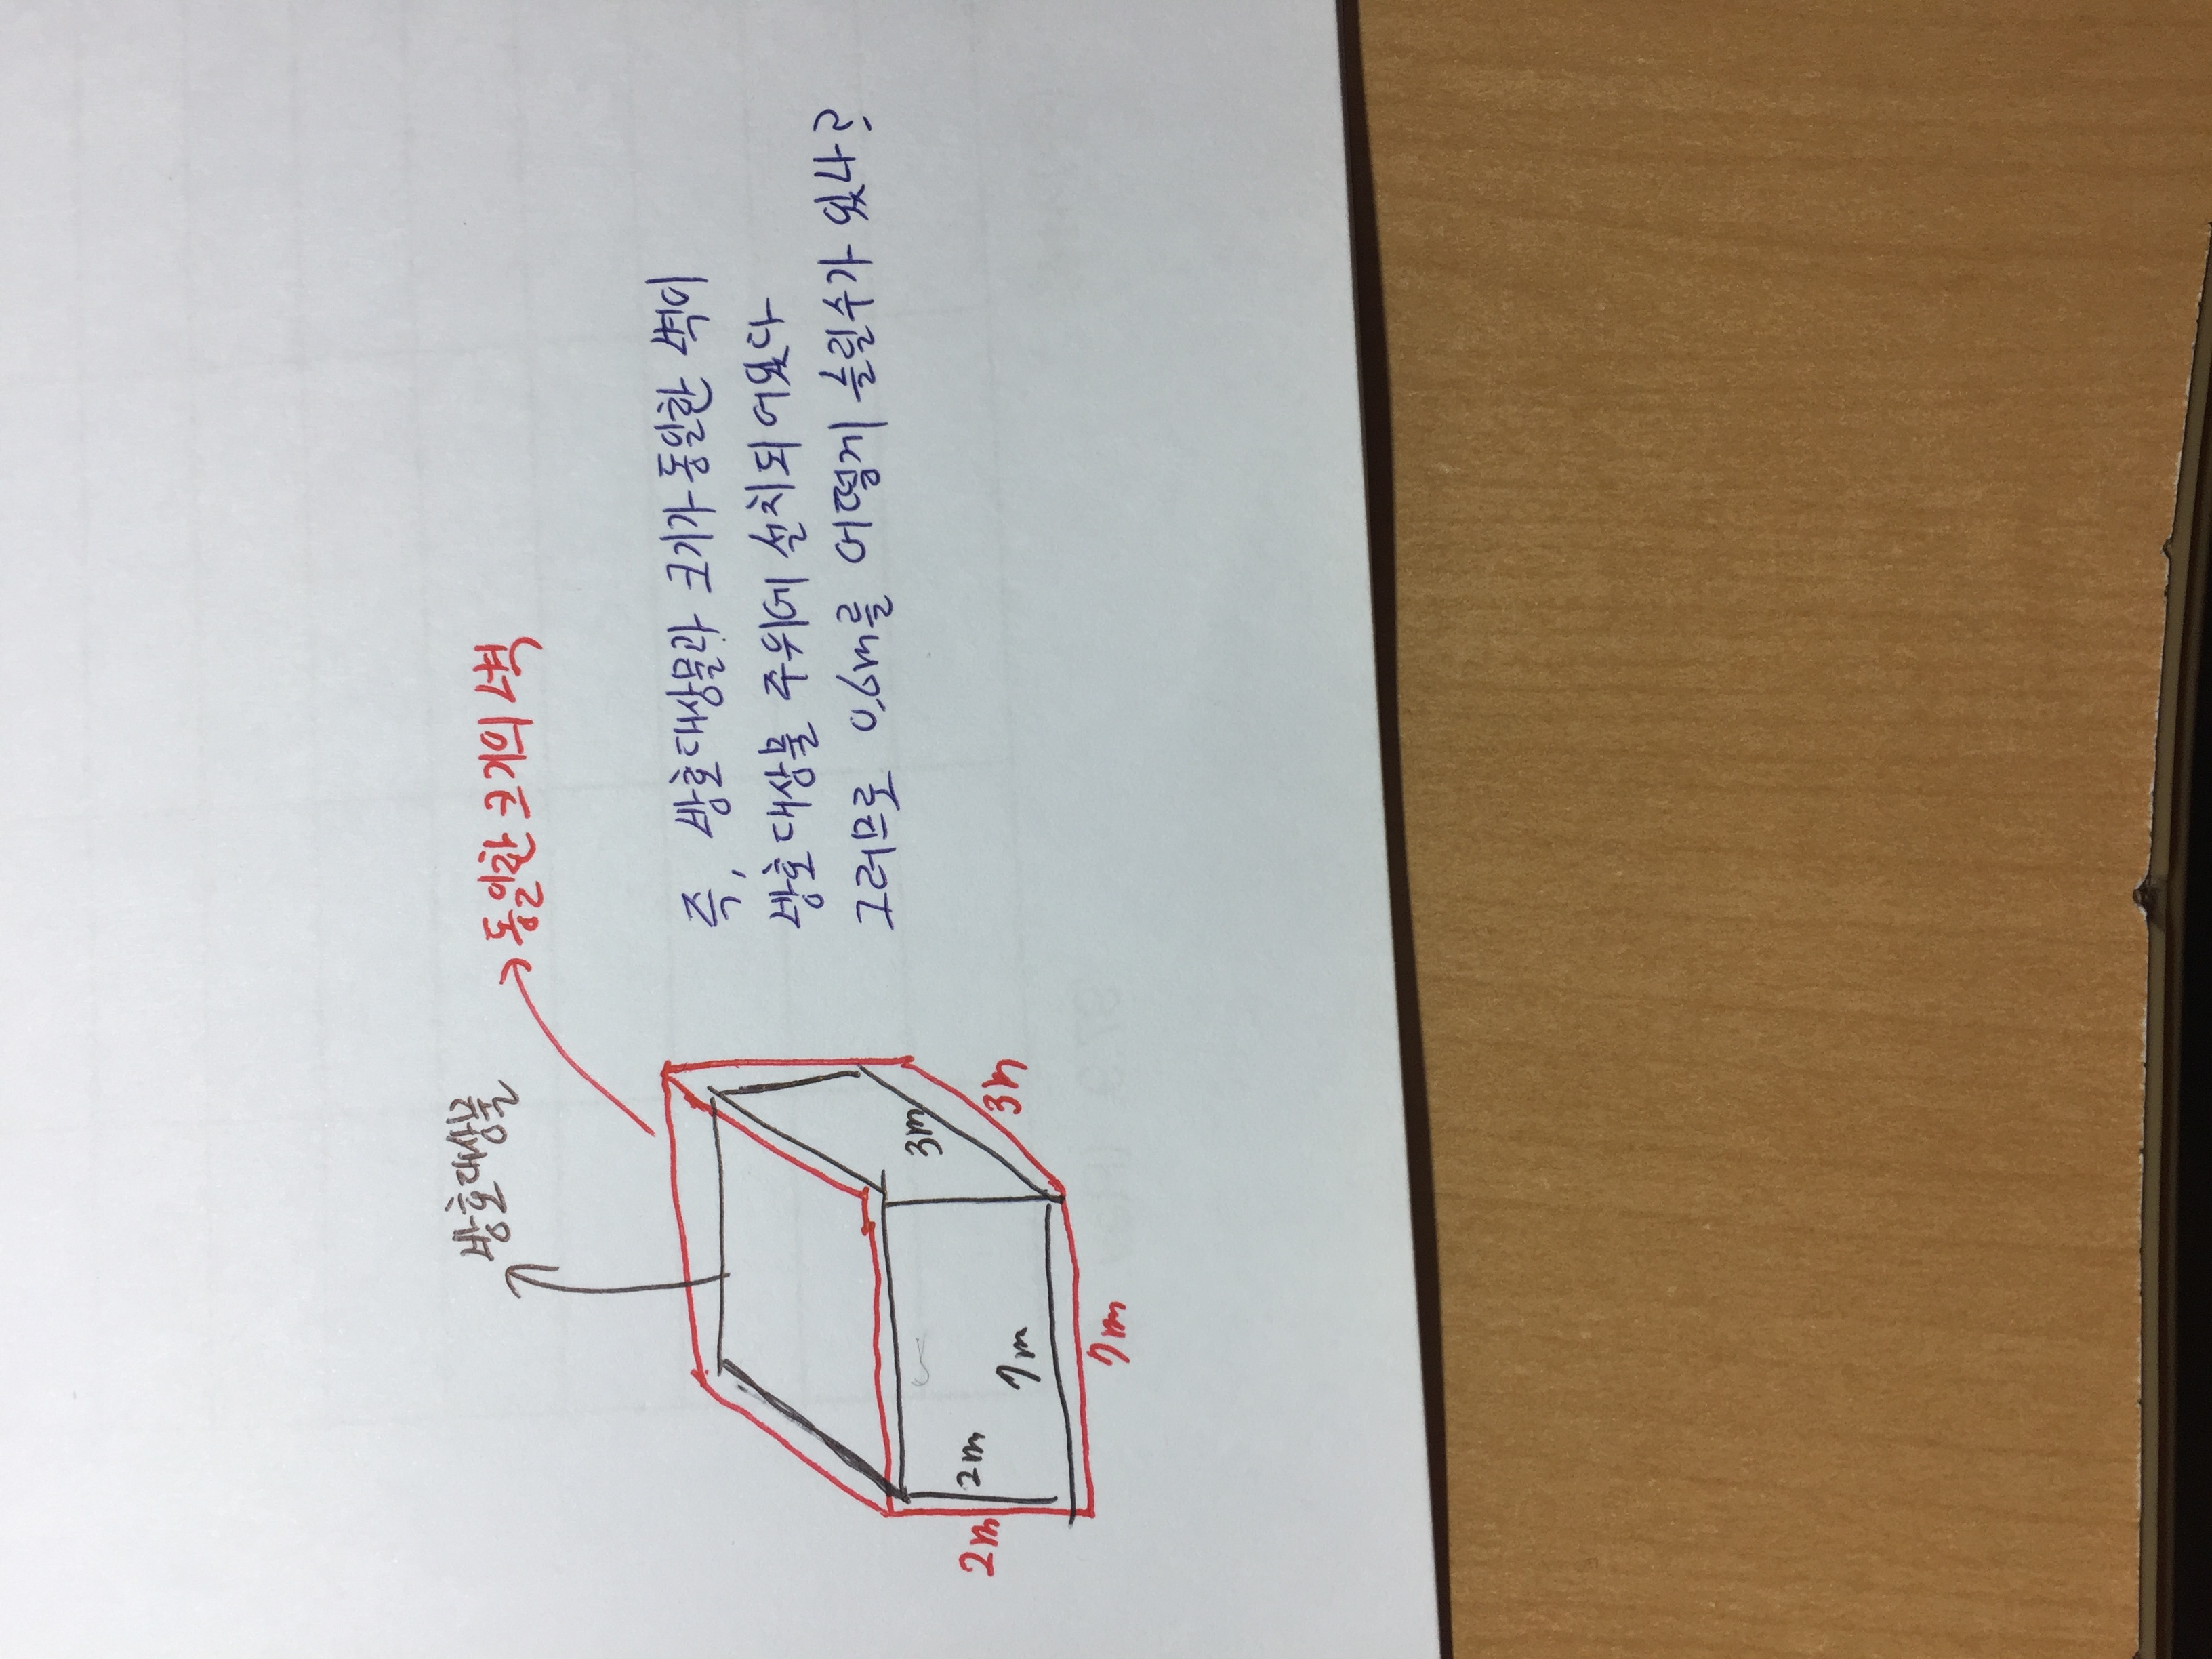 방호대상물
동일한 크기의 벽
2m
2m
7m
3m
7m
3m
즉, 방호대상물과 크기가 동일한 벽이
방호대상물 주위에 설치되어있다
그러므로 0.6m를 어떻게 늘릴수가 있나?